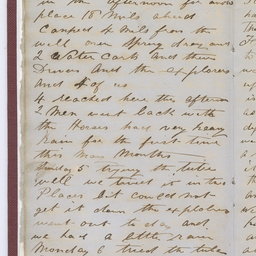 in the afternoon for
place 18 Mile ahead
Camped 4 Mile from the
well over Spring dray and
2 Water Carts and their
Drivers and the explorers
and 4 of us
4 reached here this afternoon
2 Men went back with
the Horses had very heavy
Rain for the first time
this Many Months
Sunday 5 trying the tube
well we tried it in two
Places but could not
get it down the explorers
went out to day and
we had a little rain
Monday 6 tried the tube